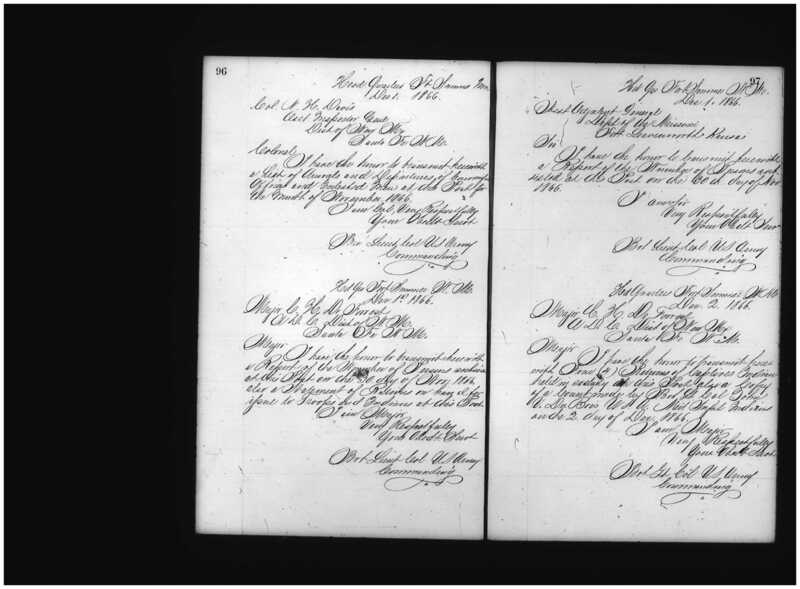 96
Head Quarters Ft Sumner N.M.
Dec 1. 1866.
Col. N. H. Davis
Asst Inspector Genl
Dist of New Mex
Santa Fe N.M.
Colonel
I have the honor to transmit herewith
a List of and of
Officers and Enlisted Men at this Post for
the Month of November 1866.
I am Col. Very Respectfully
Your Obdt Servt
Bvt Lieut Col U S Army
Commanding
Hd Qrs Fort Sumner N. M.
Dec 1st 1866.
Major C. H. De Forrest
A D C Dist of N. M.
Santa Fe N M.
Major
I have the honor to transmit herewith
a Report of the Number of Persons
at this Post on the 30 day of Nov 1866
also a Statement of on hand for
issue to Troops and Indians at this Post
I am Major
Very Respectfully
Your Obdt Servt
Bvt Lieut Col U S Army
Commanding
97
Hd Qrs Fort Sumner N. M.
Dec 1. 1866.
General
Dept of the Missouri
Fort Leavenworth Kansas
Sir
I have the honor to transmit herewith
a Report of the Number of Persons
at this Post on the 30th day of Nov
1866.
I am Sir
Very Respectfully
Your Obdt Serv
Bvt Lieut Col U S Army
Commanding
Hd Quarters Fort Sumner N. M
Dec 2. 1866.
Major C. H. De Forrest
A. D. C. Dist of New Mex
Santa Fe N. M.
Major
I have the honor to transmit here
with Returns of Captive Indians
held in at this Post also a Copy
of a by Bvt Lt Col
Indians
on the 2 day of Dec 1866.
I am Major
Very Respectfully
Your Obdt Servt
Bvt Lt Col U S Army
Commanding